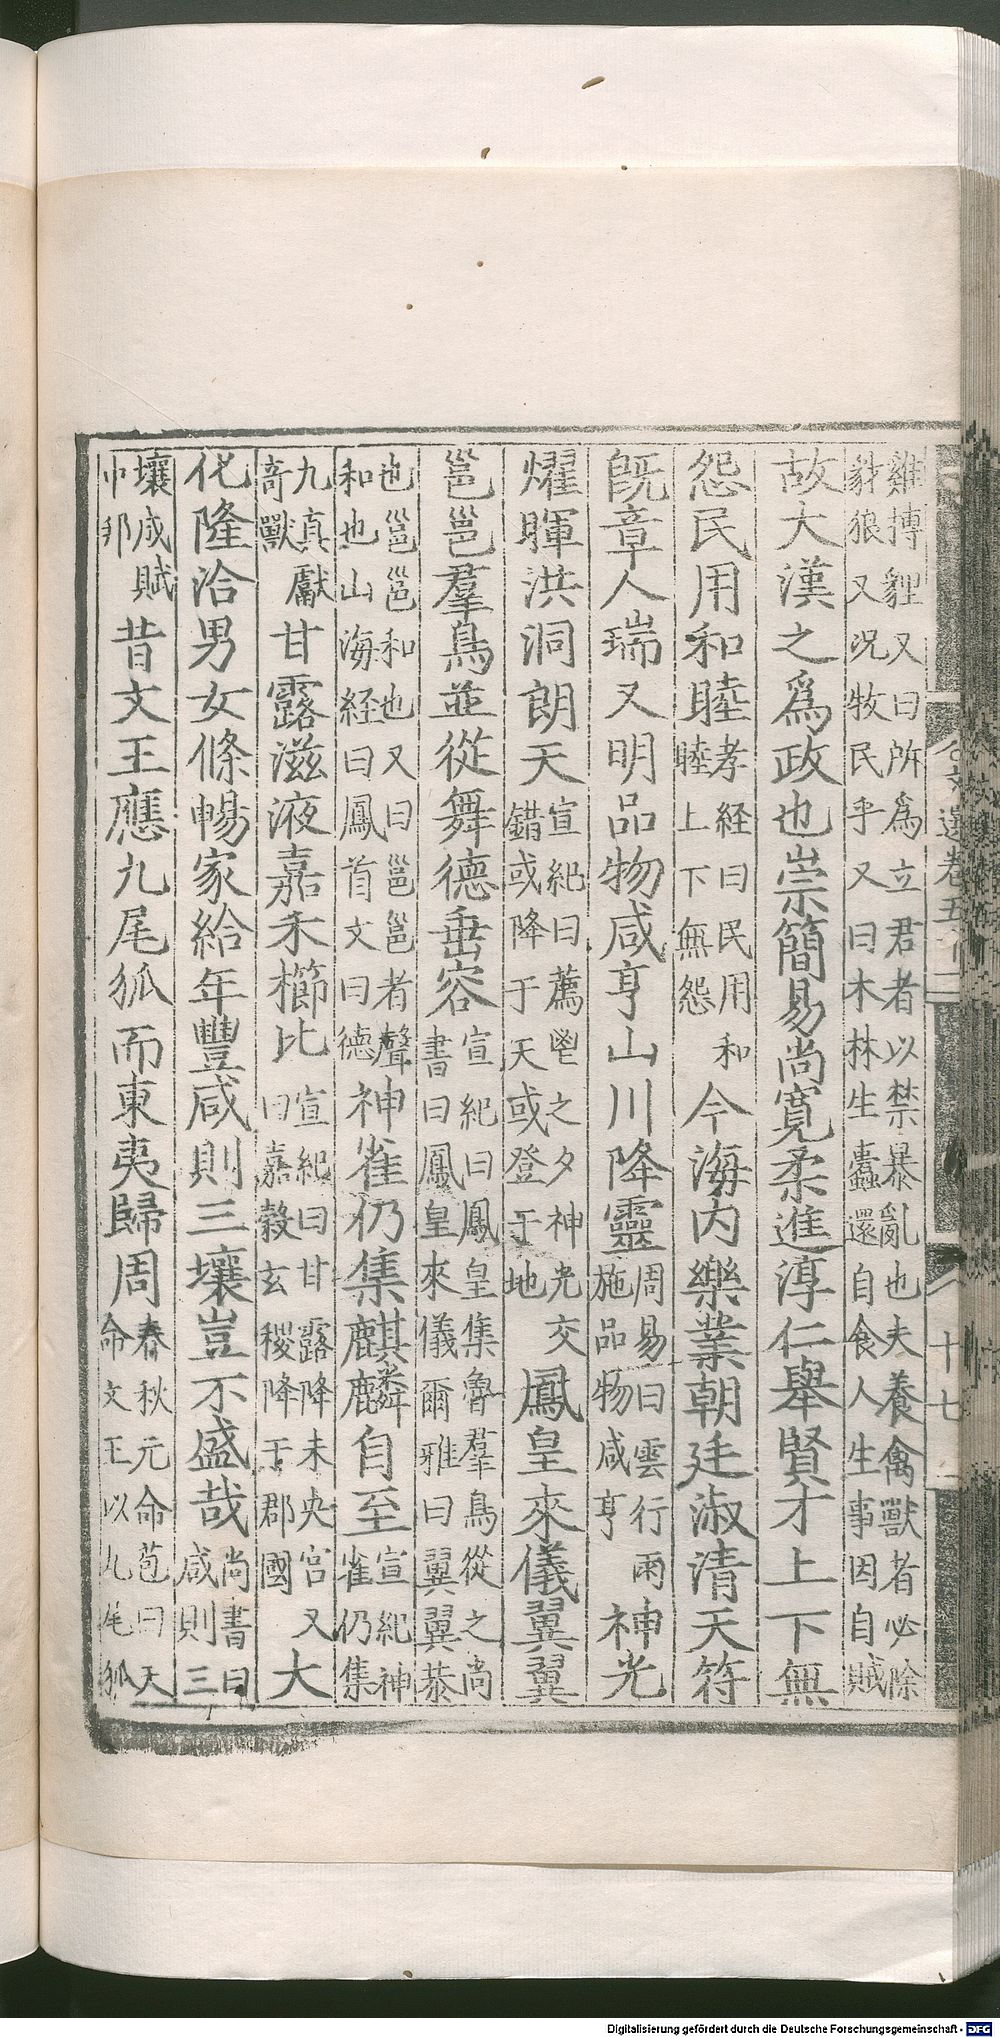 雞搏貍又曰所爲立君者以禁暴亂也夫養禽獸者必除
豺狼又況牧民乎又曰木林生蠹還自食人生事因自賊
故大漢之爲政也崇簡易尚寛柔進淳仁舉賢才上下無
怨民用和睦孝経曰民用和
睦上下無怨今海内樂業朝廷淑清天符
旣章人瑞又明品物咸亨山川降靈周易曰雲行雨
施品物咸亨神光
燿暉洪洞朗天宣紀曰薦鬯之夕神光交
錯或降于天或登于地鳳皇來儀翼翼
邕邕羣鳥並從舞德垂容宣紀曰鳳皇集魯羣鳥從之尚
書曰鳳皇來儀爾雅曰翼翼恭
也邕邕和也又曰邕邕者聲
和也山海経曰鳳首文曰德神雀仍集麒麟自至宣紀神
雀仍集
九真獻
竒獸甘露滋液嘉禾櫛比宣紀曰甘露降未央宮又
曰嘉穀玄稷降于郡國大
化隆洽男女條暢家給年豐咸則三壤豈不盛哉尚書曰
咸則三
壤成賦
中邦昔文王應九尾狐而東夷歸周春秋元命苞曰天
命文王以九尾狐
文選卷五十一
十七
Digitalisierung gefördert durch die Deutsche Forschungsgemeinschaft - DFG